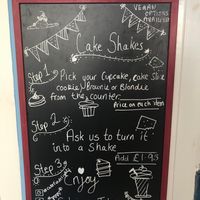 VEGAN
OPTIONS
AVAILABLE
Cake Shakes
Step 1:
Pick your Cupcake, cake slice
cookie, Brownie or Blondie
from the counter
Price on each item
Step 2:
Ask us to turn it
into a Shake
Add £1.95
Step 3:
Enjoy